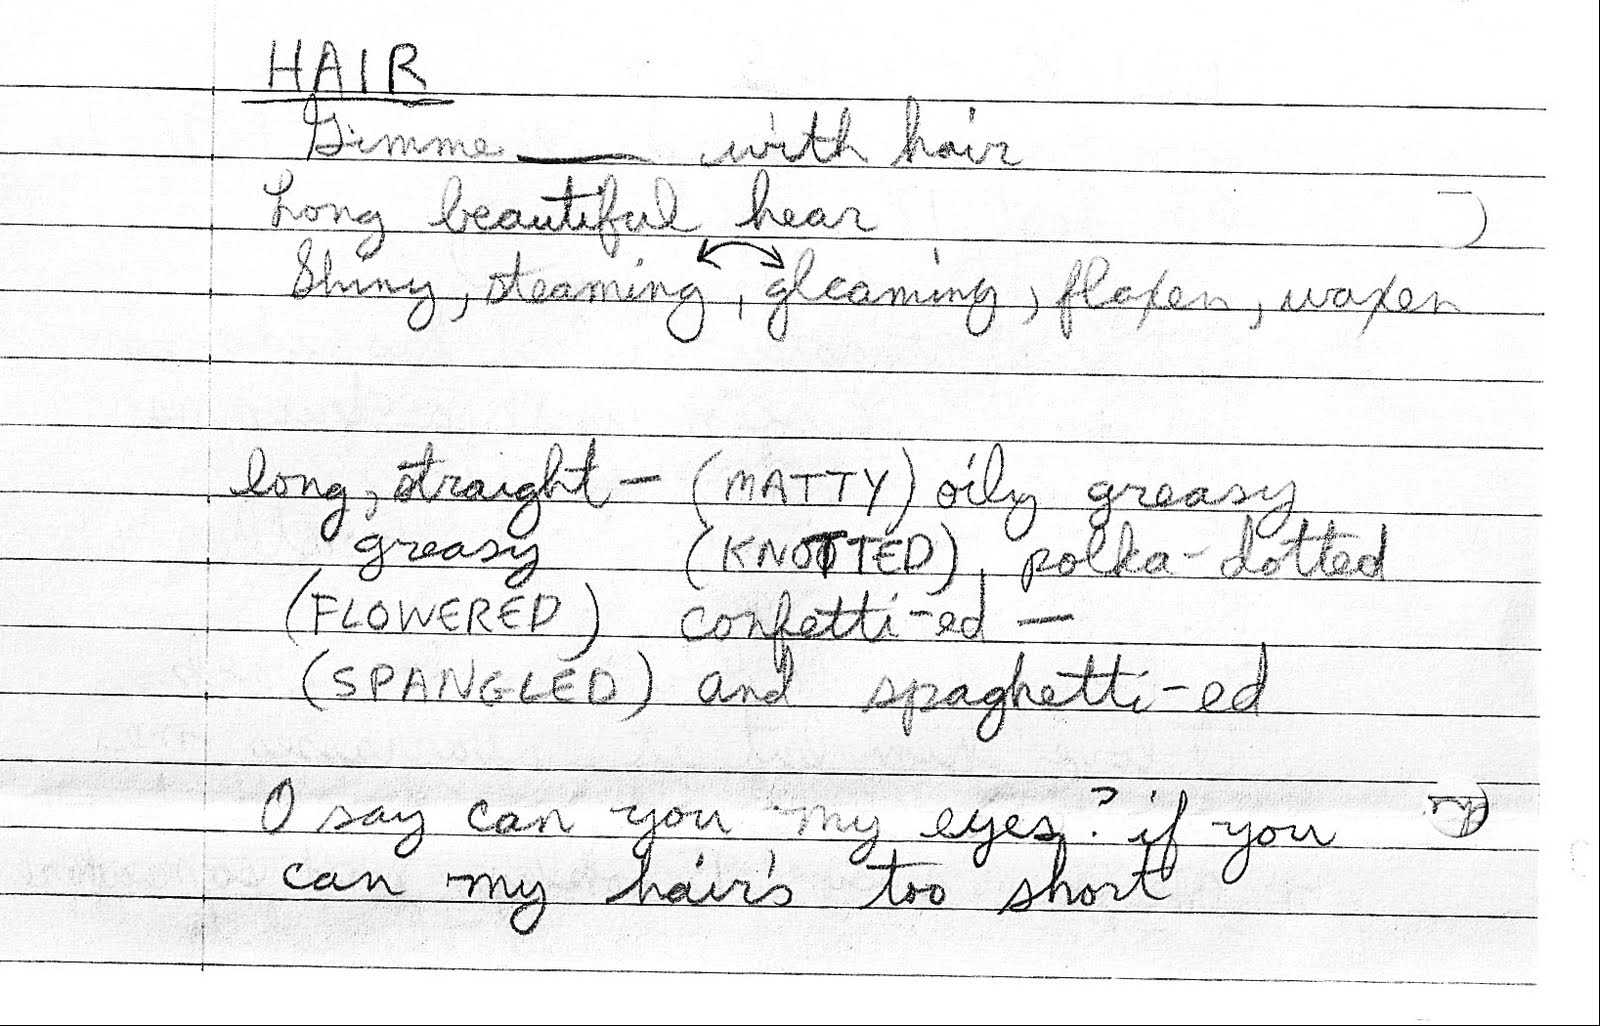 HAIR
Gimme ___ with hair
Long beautiful hear
Shiny, steaming, gleaming, flaxen, waxen
long, straight — (MATTY) oily greasy
greasy (KNOTTED), polka-dotted
(FLOWERED) confetti-ed —
(SPANGLED) and spaghetti-ed
O say can you my eyes? if you
can my hair's too short